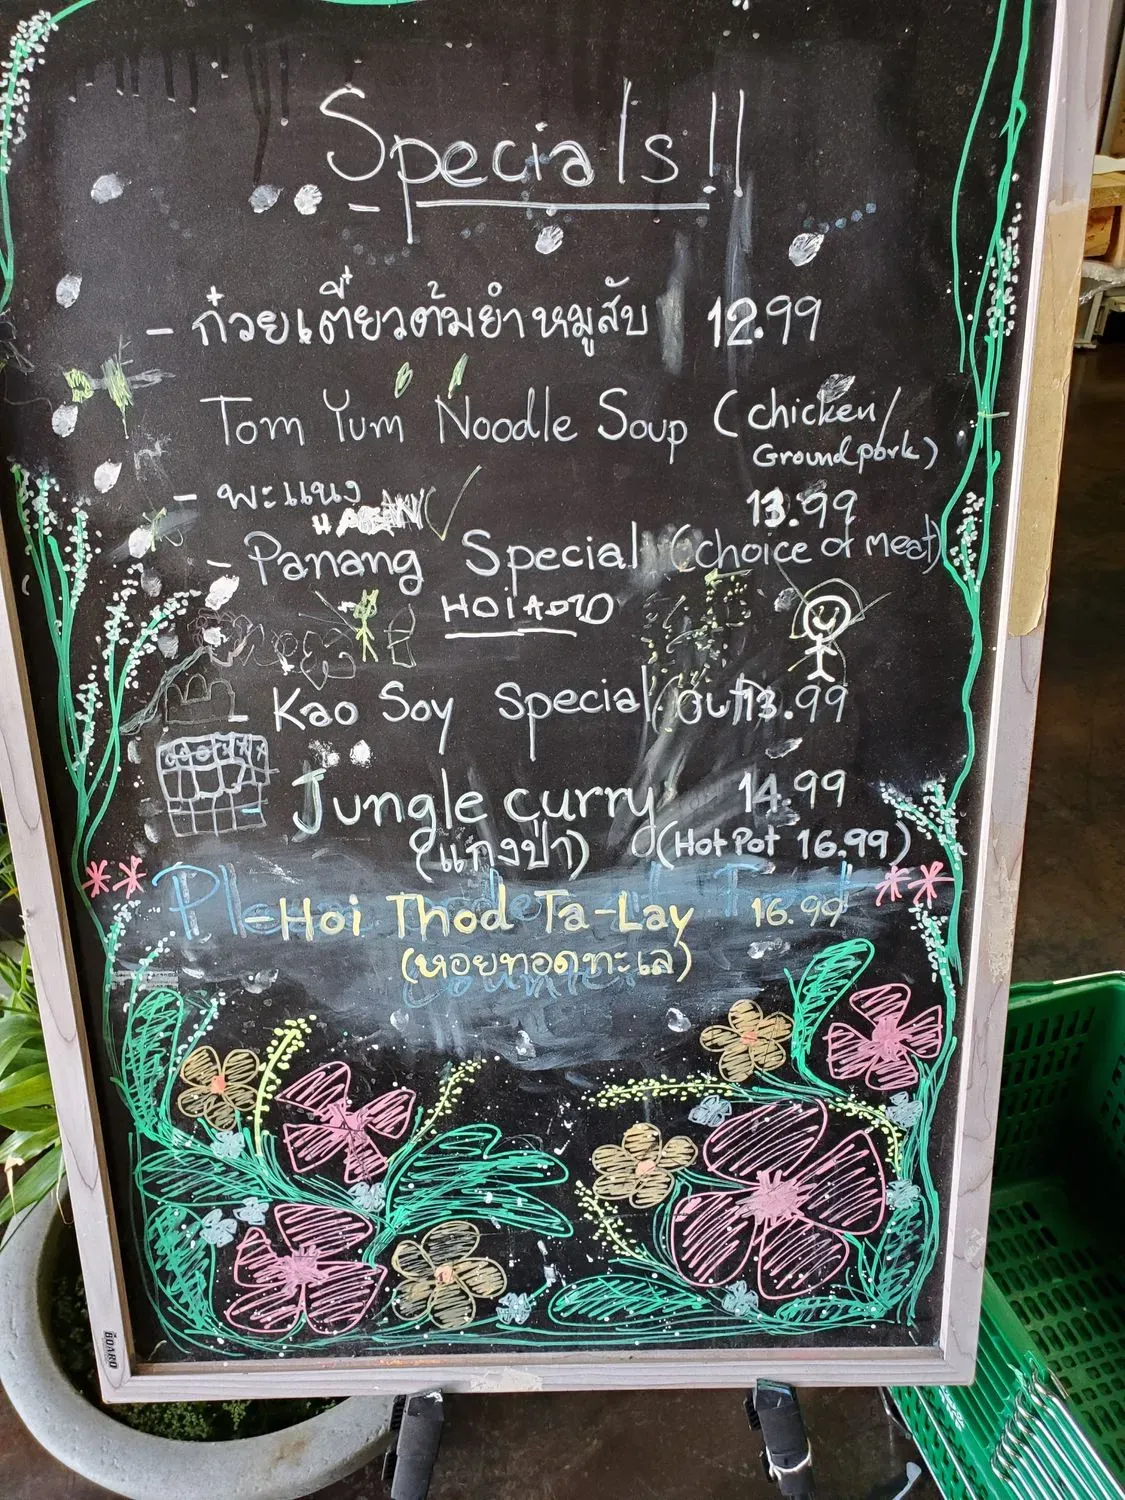 Specials!!
- ก๋วยเตี๋ยวต้มยำหมูสับ 12.99
Tom Yum Noodle Soup (chicken/
Ground pork)
- พะแนง 13.99
- Panang Special (choice of meat)
- Kao Soy Special 13.99
Jungle curry 14.99
(แกงป่า) (Hot Pot 16.99)
- Hoi Thod Ta-Lay 16.99
(หอยทอดทะเล)
BOARD